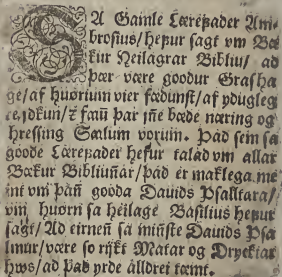 SA Gamle Læreꝥader Am-
brosius/ hefur sagt vm Bæ-
kur Heilagrar Bibliu/ ad
þær være goodur Grasha
ge/ af huørium vier fædunst/ af ydugleg
re, jdkun/ ꝛ fꜳū þar jñe bæde næring og
hressing Sꜳlum vorum. Þad sem sa
goode Læreꝥader hefur talad vm allar
Bækur Bibliuñar/ þad er maklega me
int vm þañ gooda Davids Psalltara/
vm huørn sa heilage Basilius hefur
sagt/ Ad eirneñ sa miñste Davids Psa
lmur/ være so rijkt Matar og Dryckiar
hws/ ad þad yrde alldrei tæmt.